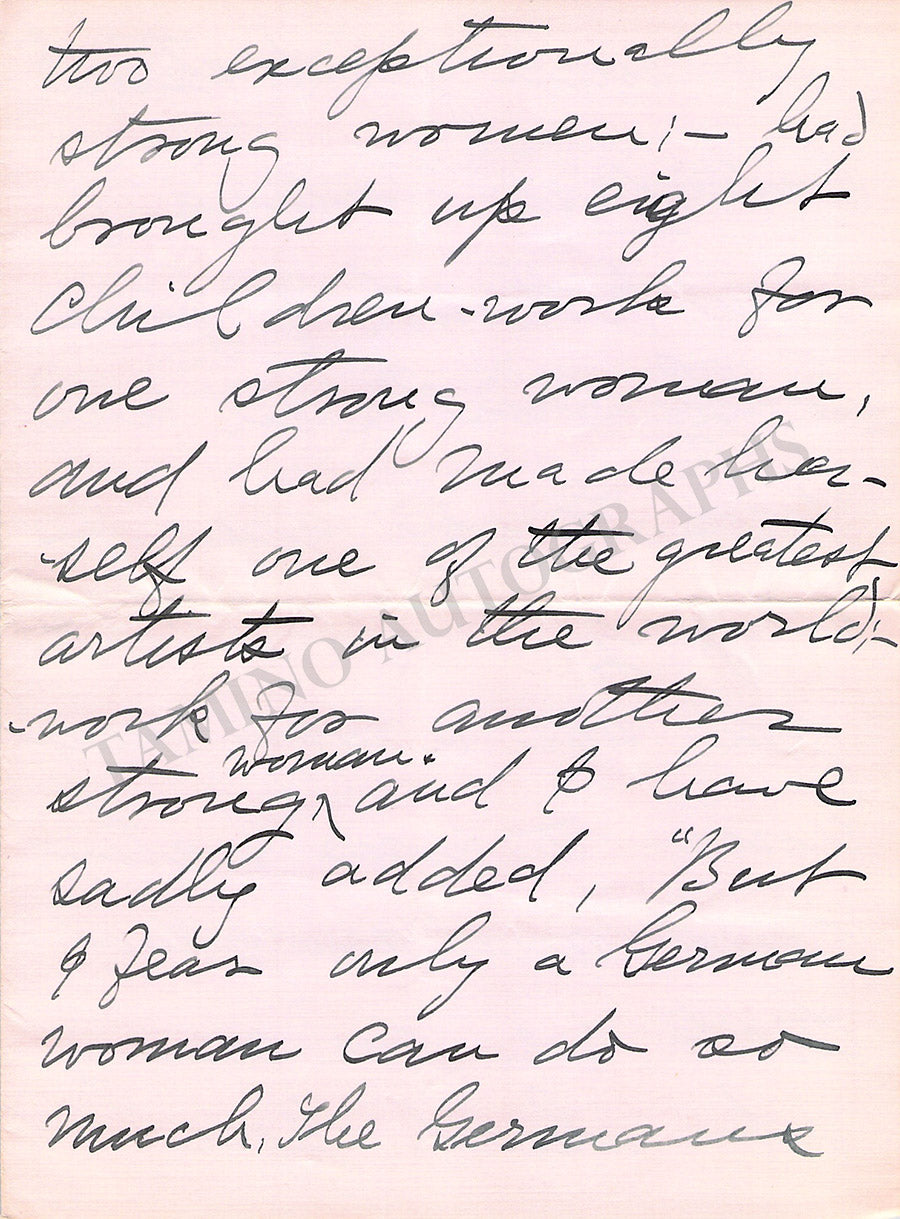 two exceptionally
strong women;- had
brought up eight
children-work for
one strong woman,
and had made her-
-self one of the greatest
artists in the world;-
-work for another
strong woman. and I have
sadly added, "But
I fear only a German
woman can do so
much. The Germans
TAMINO AUTOGRAPHS